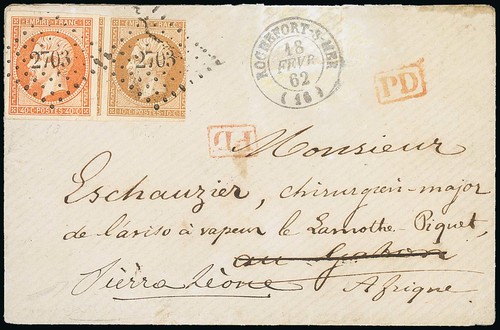 EMPIRE FRANC. EMPIRE FRANC.
2703 2703
40·C·POSTES·40·C 10·C·POSTES·10·C
ROCHEFORT-S-MER
18
FEVR
62
(16)
PD
PD
Monsieur
Eschauzier, chirurgien-major
de l'aviso à vapeur le Lamothe-Piquet,
au Gabon
Sièrra léone Afrique